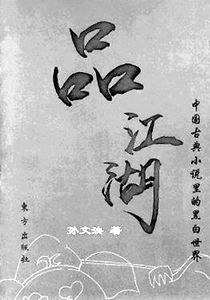 品江湖
中国古典小说里的黑白世界
孙文浜 著
东方出版社